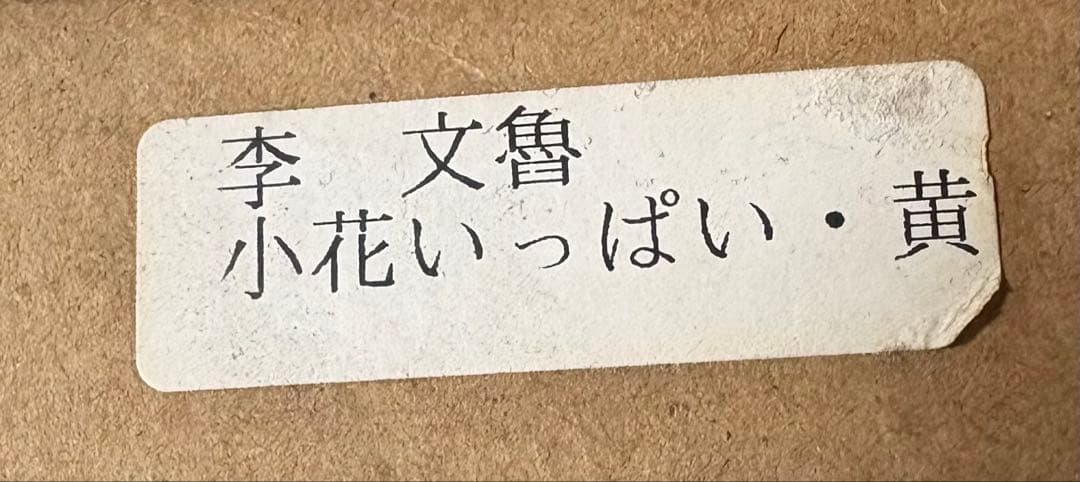 李　文魯
小花いっぱい・黄